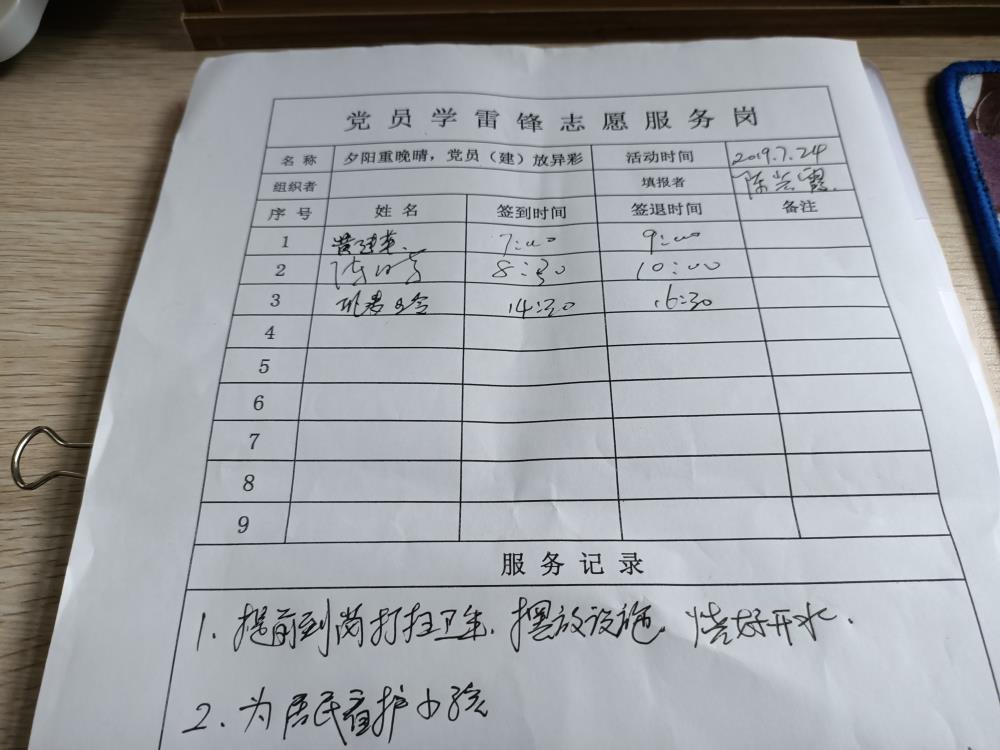 党员学雷锋志愿服务岗
名称 夕阳重晚晴，党员（建）放异彩 活动时间 2019.7.24
组织者 填报者 陈
序号 姓名 签到时间 签退时间 备注
1 黄建英 7:00 9:00
2 8:30 10:00
3 14:30 16:30
4
5
6
7
8
9
服务记录
1. 提前到岗打扫卫生. 摆放设施. 烧好开水.
2. 为居民看护小孩